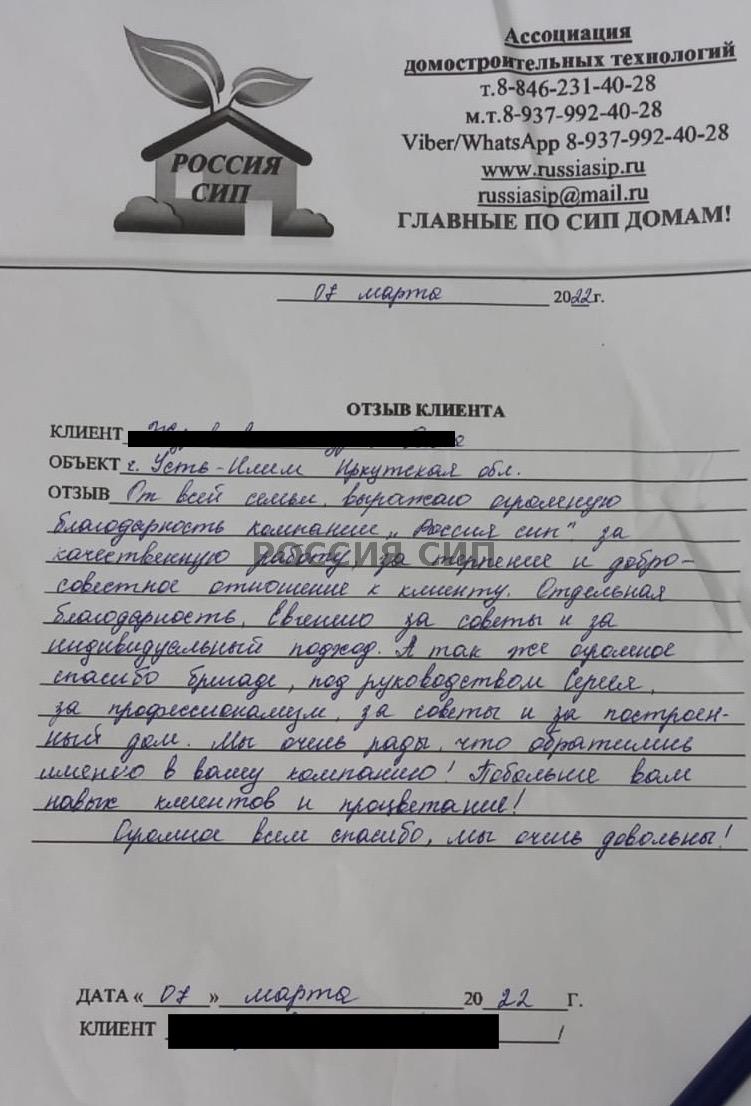 Ассоциация
домостроительных технологий
т.8-846-231-40-28
м.т.8-937-992-40-28
Viber/WhatsApp 8-937-992-40-28
www.russiasip.ru
russiasip@mail.ru
ГЛАВНЫЕ ПО СИП ДОМАМ!
РОССИЯ
СИП
07 марта 2022 г.
ОТЗЫВ КЛИЕНТА
КЛИЕНТ
ОБЪЕКТ г. Усть-Илим Иркутская обл.
ОТЗЫВ От всей семьи, выражаю огромную
благодарность компании „Россия сип" за
качественную работу за терпение и добро-
РОССИЯ СИП
совестное отношение к клиенту. Отдельная
благодарность, Евгению за советы и за
индивидуальный подход. А так же огромное
спасибо бригаде, под руководством Сергея,
за профессионализм, за советы и за построен-
ный дом. Мы очень рады, что обратились
именно в вашу компанию! Побольше вам
навых клиентов и процветание!
Огромное всем спасибо, мы очень довольны!
ДАТА « 07 » марта 20 22 Г.
КЛИЕНТ /